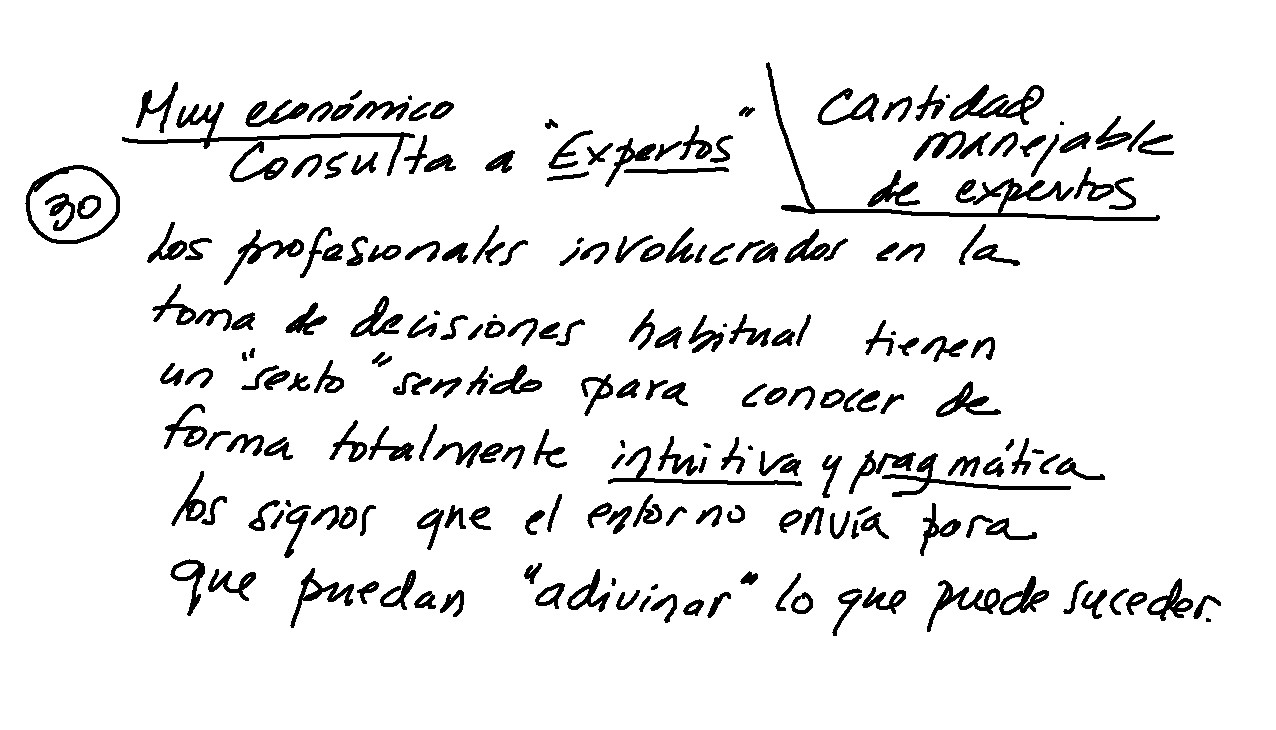 Muy económico
Consulta a "Expertos"
Cantidad
manejable
de expertos
30
Los profesionales involucrados en la
toma de decisiones habitual tienen
un "sexto" sentido para conocer de
forma totalmente intuitiva y pragmática
los signos que el entorno envía para
que puedan "adivinar" lo que puede suceder.